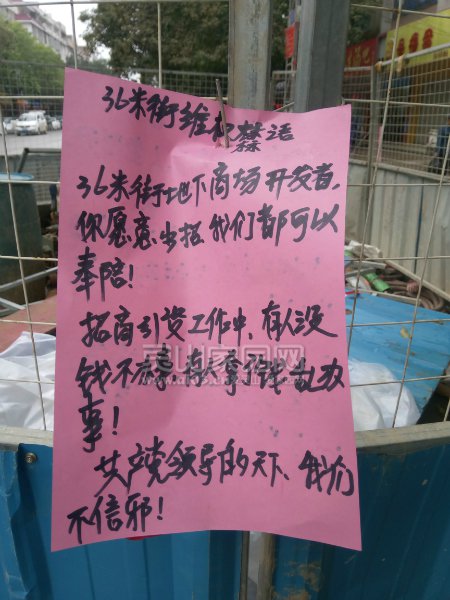 36米街维权语
36米街地下商场开发者，
你愿意出招，我们都可以
奉陪！
招商引资工作中，有人没
钱不 有人拿钱乱办
事！
共产党领导的天下、我们
不信邪！